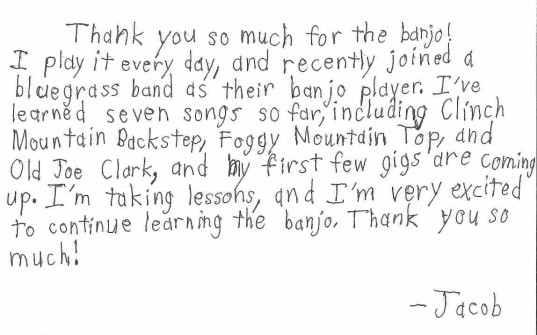 Thank you so much for the banjo!
I play it every day, and recently joined a
bluegrass band as their banjo player. I've
learned seven songs so far, including Clinch
Mountain Backstep, Foggy Mountain Top, and
Old Joe Clark, and my first few gigs are coming
up. I'm taking lessons, and I'm very excited
to continue learning the banjo. Thank you so
much!
-Jacob